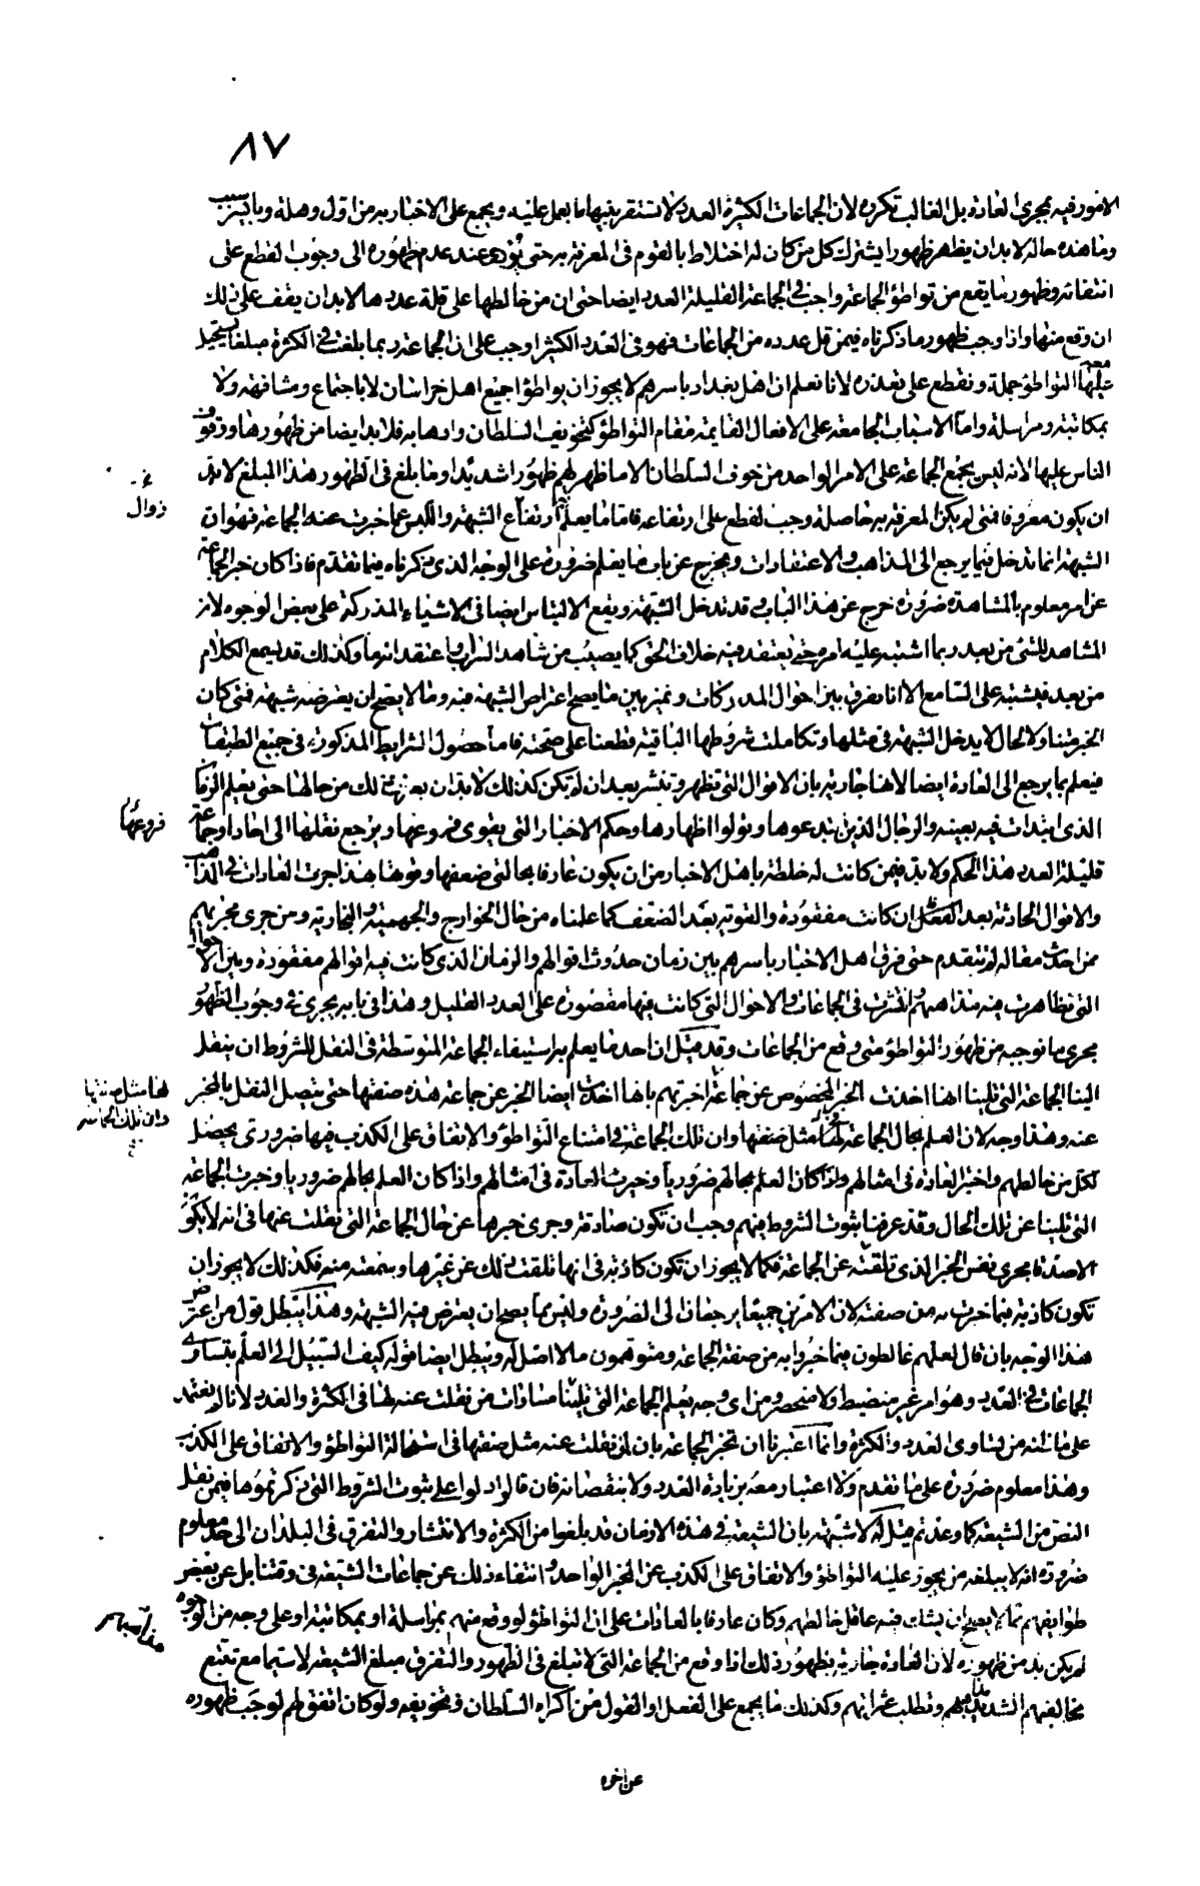 ٨٧
الامور فيه مجرى العادة بل الغالب تكرره لان الجماعات الكثيرة العدد لا تستقر بينها ما يعمل عليه ويجمع على الاخبار به من اول وهلة وبايسر سبب
وما هذه حاله لا بد ان يظهر ظهورا يشترك كل من كان له اختلاط بالقوم في المعرفة به حتى يؤد عند عدم ظهوره الى وجوب القطع على
انتفائه وظهور ما يقع من تواطؤ الجماعة واجب في الجماعة القليلة العدد ايضا حتى ان من خالطها على قلة عددها لا بد ان يقف على ذلك
ان وقع منها واذا وجب ظهور ما ذكرناه فيمن قل عدده من الجماعات فهو في العدد الكثير اوجب على ان الجماعة ربما بلغت في الكثرة مبلغا يستحيل
عليها معه التواطؤ جملة ونقطع على تعذره لانا نعلم ان اهل بغداد باسرهم لا يجوز ان يواطؤا جميع اهل خراسان لا باجتماع ومشافهة ولا
بمكاتبة ومراسلة واما الاسباب الجامعة على الافعال القايمة مقام التواطؤ كتخويف السلطان وارهابه فلا بد ايضا من ظهورها ووقوف
الناس عليها لانه ليس يجتمع الجماعة على الامر الواحد من خوف السلطان الا ما ظهر لهم ظهورا شديدا وما بلغ في الظهور هذا المبلغ لا بد
زوال
ان يكون معروفا فمتى لم يكن المعرفة به حاصلة وجب القطع على ارتفاعه فاما ما يعلم به ارتفاع الشبهة واللبس عما خبرت عنه الجماعة فهو ان
الشبهة انما تدخل فيما يرجع الى المذاهب والاعتقادات ويخرج عن باب ما يعلم ضرورة على الوجه الذي ذكرناه فيما تقدم فاذا كان خبر الجماعة
عن امر معلوم بالمشاهدة ضرورة خرج عن هذا الباب وقد تدخل الشبهة ويقع الالتباس ايضا في الاشياء المدركة على بعض الوجوه لان
المشاهد للشئ من بعد ربما اشتبه عليه امره حتى يعتقد فيه خلاف الحق كما يصيب من شاهد السراب واعتقد انه ماء وكذلك قد يسمع الكلام
من بعد فيشتبه على السامع الا انا نفرق بين احوال المدركات ونميز بين ما يصح اعتراض الشبهة فيه وما لا يصح ان يعترضه شبهة فمتى كان
الخبر متناولا لحال لا يدخل الشبهة في مثلها وتكاملت شروطها الباقية قطعنا على صحته فاما حصول الشرايط المذكورة في جميع الطبقات
فيعلم بما يرجع الى العادة ايضا لانها جارية بان الاقوال التي تظهر وتنتشر بعد ان لم تكن كذلك لا بد ان يعرف ذلك من حالها حتى يعلم الزمان
فروعها
الذي ابتدات فيه بعينه والرجال الذين ابتدعوها وتولوا اظهارها وحكم الاخبار التي يقوى فروعها ويرجع نقلها الى احاد او جماعة
قليلة العدد هذا الحكم ولا بد فيمن كانت له خلطة باهل الاخبار من ان يكون عارفا بحالتي ضعفها وقوتها بهذا جرت العادات في المذاهب
والاقوال الحادثة بعد ان كانت مفقودة والقوية بعد الضعف كما علمناه من حال الخوارج والجهمية والنجارية ومن جرى مجراهم
ممن احدث مقالة لم تتقدم حتى فرق اهل الاخبار باسرهم بين زمان حدوث اقوالهم والزمان الذي كانت فيه اقوالهم مفقودة وبين الاحوال
التي تظاهرت فيه مذاهبهم وانتشرت في الجماعات والاحوال التي كانت فيها مقصورة على العدد القليل وهذا في بابه يجرى في وجوب الظهور
مجرى ما نوجبه من ظهور التواطؤ متى وقع من الجماعات وقد قيل ان احد ما يعلم به استيفاء الجماعة المتوسطة في النقل للشروط ان ينقل
لها مثل صفتها
وان تلك الجماعة
الينا الجماعة التي تلينا انها اخذت الخبر المخصوص عن جماعة اخبرتهم بانها اخذت ايضا الخبر عن جماعة هذه صفتها حتى يتصل النقل بالمخبر
عنه وهذا وجه لان العلم بحال الجماعة مثل صفتها وان تلك الجماعة في امتناع التواطؤ والاتفاق على الكذب فيها ضروري يحصل
لكل من خالطهم واختبر العادة في امثالهم واذا كان العلم بحالهم ضروريا وجرت العادة في امثالهم واذا كان العلم بحالهم ضروريا وخبرت الجماعة
التي تلينا عن تلك الحال وقد عرفنا بثبوت الشروط فيهم وجب ان تكون صادقة وجرى خبرها عن حال الجماعة التي نقلت عنها في انه لا يكون
الا صدقا مجرى نفس الخبر الذي تلقته عن الجماعة فكما لا يجوز ان تكون كاذبة في انها تلقت ذلك عن غيرها وسمعته منه فكذلك لا يجوز ان
تكون كاذبة فيما خبرت به من صفته لان الامرين جميعا يرجعان الى الضرورة وليس بما يصح ان يعترض فيه الشبهة وهذا يبطل قول من اعترض
هذا الوجه بان قال لعلهم غالطون فيما خبروا به من صفة الجماعة ومتوهمون ما لا اصل له ويبطل ايضا قوله كيف السبيل الى العلم بتساوى
الجماعات في العدد وهو امر غير منضبط ولا منحصر ومن اى وجه يعلم الجماعة التي تلينا مساوات من نقلت عنه لها في الكثرة والعدد لانا لم نعتمد
على ما ظنه من تساوى العدد والكثرة وانما اعتبرنا ان تخبر الجماعة بان من نقلت عنه مثل صفتها في استحالة التواطؤ والاتفاق على الكذب
وهذا معلوم ضرورة على ما تقدم ولا اعتبار معه بزيادة العدد ولا بنقصانه فان قالوا دلوا على ثبوت الشروط التي ذكرتموها فيمن نقل
النص من الشيعة كما وعدتم قيل له لا شبهة بان الشيعة في هذه الازمان قد بلغوا من الكثرة والانتشار والتفرق في البلدان الى حد معلوم
ضرورة انه لا يبلغه من يجوز عليه التواطؤ والاتفاق على الكذب عن المخبر الواحد وانتفاء ذلك عن جماعات الشيعة في وقتنا بل عن بعض
طوايفهم مما لا يصح ان يشك فيه عاقل خالطهم وكان عارفا بالعادات على ان التواطؤ لو وقع منهم بمراسلة او بمكاتبة او على وجه من الوجوه
لم يكن بد من ظهوره لان العادة جارية بظهور ذلك اذا وقع من الجماعة التي لا تبلغ في الظهور والتفرق مبلغ الشيعة لا سيما مع تتبع
مخالفيهم الشديد لهم وتطلب عثراتهم وكذلك ما يجمع على الفعل او القول من اكراه السلطان وتخويفه ولو كان اتفق لهم لوجب ظهوره